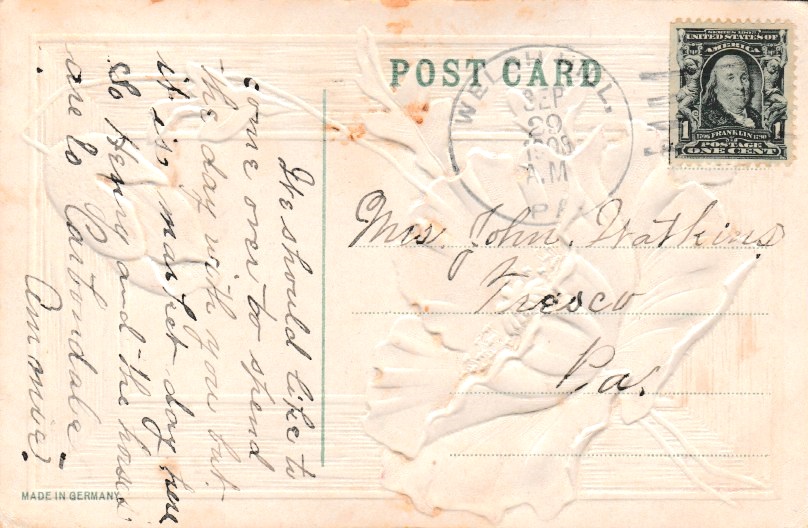 POST CARD
SERIES 1902
UNITED STATES OF
AMERICA
1 1
1706 FRANKLIN 1790
POSTAGE
ONE CENT
SEP
29
1908
A.M.
PA.
Mrs. John Watkins
Fresco
Pa.
We should like to
come over to spend
the day with you but
it is market day here
So Henry and the horses
are to Carbondale
MADE IN GERMANY